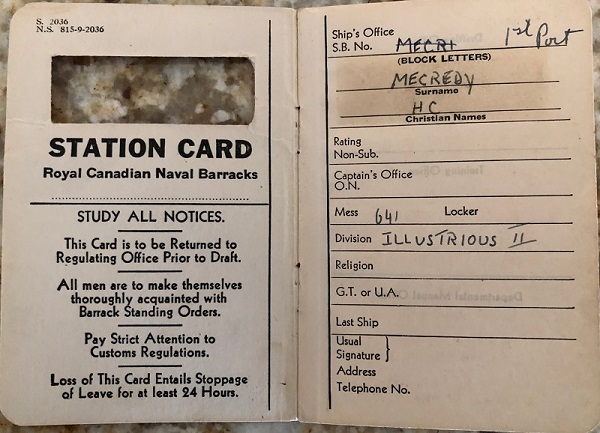 S. 2036
N.S. 815-9-2036
STATION CARD
Royal Canadian Naval Barracks
STUDY ALL NOTICES.
This Card is to be Returned to
Regulating Office Prior to Draft.
All men are to make themselves
thoroughly acquainted with
Barrack Standing Orders.
Pay Strict Attention to
Customs Regulations.
Loss of This Card Entails Stoppage
of Leave for at least 24 Hours.
Ship's Office
S.B. No. MECRI 1st Port
(BLOCK LETTERS)
MECREDY
Surname
HC
Christian Names
Rating
Non-Sub.
Captain's Office
O.N.
Mess 641 Locker
Division ILLUSTRIOUS II
Religion
G.T. or U.A.
Last Ship
Usual
Signature
Address
Telephone No.